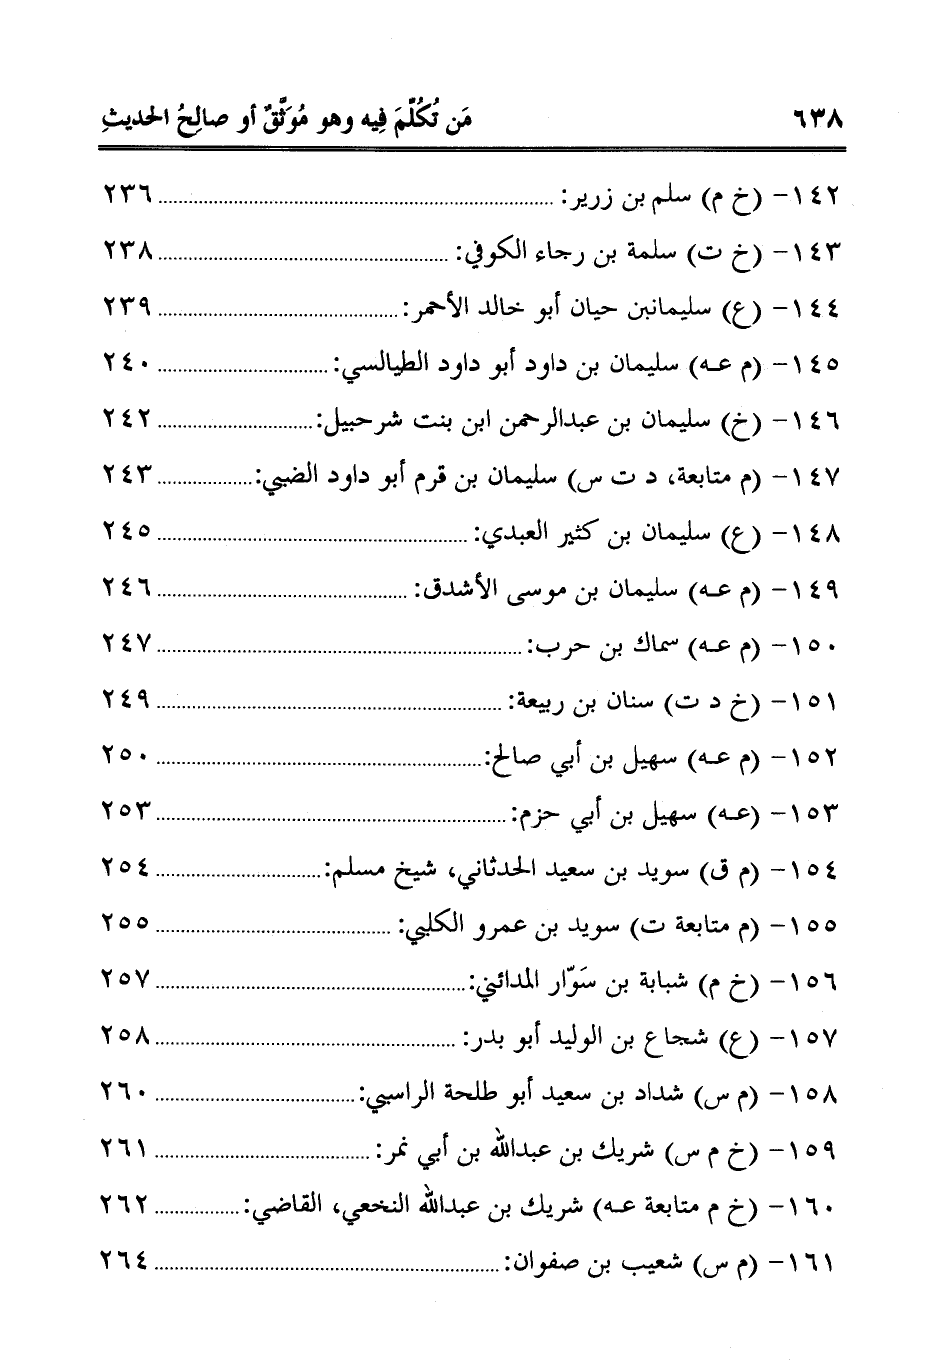 ٦٣٨ مَن تُكُلِّمَ فِيه وهو مُوَثَّقٌ أو صالِحُ الحديثِ
١٤٢- (خ م) سلم بن زرير: ........ ٢٣٦
١٤٣- (خ ت) سلمة بن رجاء الكوفي: ........ ٢٣٨
١٤٤- (ع) سليمانبن حيان أبو خالد الأحمر: ........ ٢٣٩
١٤٥- (م عـه) سليمان بن داود أبو داود الطيالسي: ........ ٢٤٠
١٤٦- (خ) سليمان بن عبدالرحمن ابن بنت شرحبيل: ........ ٢٤٢
١٤٧- (م متابعة، د ت س) سليمان بن قرم أبو داود الضبي: ........ ٢٤٣
١٤٨- (ع) سليمان بن كثير العبدي: ........ ٢٤٥
١٤٩- (م عـه) سليمان بن موسى الأشدق: ........ ٢٤٦
١٥٠- (م عـه) سماك بن حرب: ........ ٢٤٧
١٥١- (خ د ت) سنان بن ربيعة: ........ ٢٤٩
١٥٢- (م عـه) سهيل بن أبي صالح: ........ ٢٥٠
١٥٣- (عـه) سهيل بن أبي حزم: ........ ٢٥٣
١٥٤- (م ق) سويد بن سعيد الحدثاني، شيخ مسلم: ........ ٢٥٤
١٥٥- (م متابعة ت) سويد بن عمرو الكلبي: ........ ٢٥٥
١٥٦- (خ م) شبابة بن سَوّار المدائني: ........ ٢٥٧
١٥٧- (ع) شجاع بن الوليد أبو بدر: ........ ٢٥٨
١٥٨- (م س) شداد بن سعيد أبو طلحة الراسبي: ........ ٢٦٠
١٥٩- (خ م س) شريك بن عبدالله بن أبي نمر: ........ ٢٦١
١٦٠- (خ م متابعة عـه) شريك بن عبدالله النخعي، القاضي: ........ ٢٦٢
١٦١- (م س) شعيب بن صفوان: ........ ٢٦٤